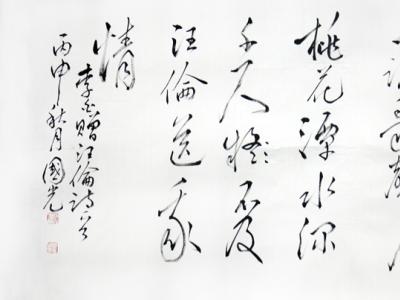 桃花潭水深
千尺不及
汪倫送我
情
李白贈汪倫詩
丙申秋月國光